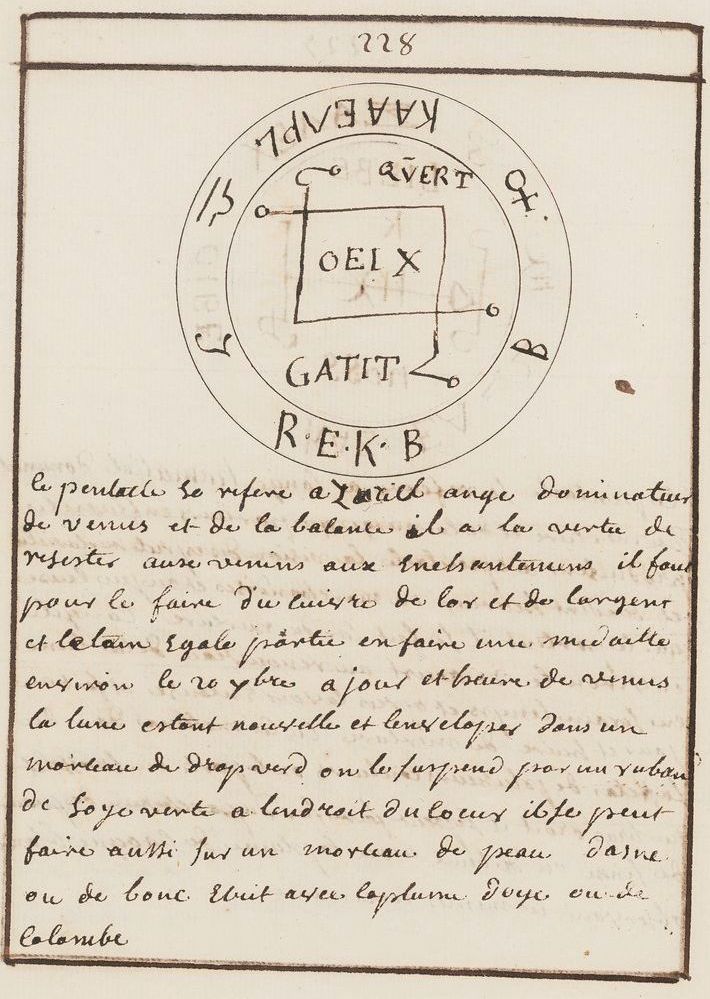 228
QVERT
OEIX
GATIT
B
R·E·K·B
le pentacle se refere a Zuriel ange dominateur
de venus et de la balance il a la vertu de
resister ause venins aux Enchantemens il faut
pour le faire du cuivre de lor et de largent
et letain Egale partie en faire une medaille
environ le 20 7bre a jour et heure de venus
la lune estant nouvelle et lenveloper dans un
morceau de drap verd on le suspend par un ruban
de soye verte a lendroit du coeur il se peut
faire aussi sur un morceau de peau dasne
ou de bouc Ecrit avec la plume doye ou de
Colombe